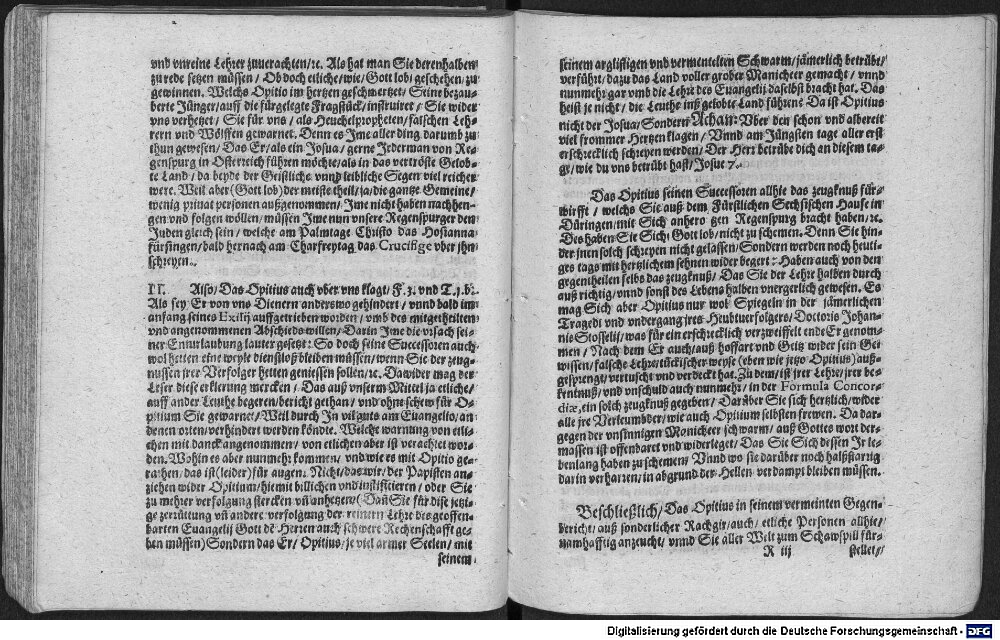 vnd vnreine Lehrer zuuerachten/ꝛc. Als hat man Sie derenhalben
zu rede setzen müssen/ Ob doch etliche/ wie/ Gott lob/ geschehen/ zu
gewinnen. Welchs Opitio im hertzen geschmertzet/ Seine bezau-
berte Jünger/ auff die fürgelegte Fragstück/ instruiret/ Sie wider
vns verhetzet/ Sie für vns/ als Heuchelpropheten/ falschen Leh-
rern vnd Wölffen gewarnet. Denn es Jme aller ding darumb zu
thun gewesen/ Das Er/ als ein Josua/ gerne Jederman von Re-
genspurg in Osterreich führen möchte/ als in das vertröste Gelob-
te Land/ da beyde der Geistliche vnnd leibliche Segen viel reicher
were. Weil aber (Gott lob) der meiste theil/ ja/ die gantze Gemeine/
wenig priuat personen außgenommen/ Jme nicht haben nachhen-
gen vnd folgen wöllen/ müssen Jme nun vnsere Regenspurger den
Juden gleich sein/ welche am Palmtage Christo das Hosianna
fürsingen/ bald hernach am Charfreytag das Crucifige vber jhn
schreyen.
II. Also/ Das Opitius auch vber vns klagt/ F. 3. vnd T. 1. b.
Als sey Er von vns Dienern anderswo gehindert/ vnnd bald im
anfang seines Exilij auffgetrieben worden/ vmb des mitgetheilten
vnd angenommenen Abschieds willen/ Darin Jme die vrsach sei-
ner Enturlaubung lauter gesetzt: So doch seine Successoren auch
wol hetten eine weyle dienstloß bleiben müssen/ wenn Sie der zeug-
nussen jrer Verfolger hetten geniessen sollen/ꝛc. Dawider mag der
Leser diese erklerung mercken/ Das auß vnserm Mittel ja etliche/
auff ander Leuthe begeren/ bericht gethan/ vnd ohne schew für O-
pitium Sie gewarnet/ Weil durch Jn vil guts am Euangelio/ an
denen orten/ verhindert werden köndte. Welche warnung von etli-
chen mit danck angenommen/ von etlichen aber ist verachtet wor-
den. Wohin es aber nunmehr kommen/ vnd wie es mit Opitio ge-
rathen/ das ist (leider) für augen: Nicht/ das wir/ der Papisten an-
ziehen wider Opitium/ hiemit billichen vnd iustificieren/ oder Sie
zu mehrer verfolgung stercken vñ anhetzen/ (Dañ Sie für dise jetzi-
ge zerrüttung vñ andere verfolgung der reinern Lehre des geoffen-
barten Euangelij Gott dẽ Herren auch schwere Rechenschafft ge-
ben müssen) Sondern das Er/ Opitius/ je viel armer Seelen/ mit
seinem
seinem arglistigen vnd vermentelten Schwarm/ jämerlich betrübt/
verführt/ dazu das Land voller grober Manicheer gemacht/ vnnd
nunmehr gar vmb die Lehre des Euangelij daselbst bracht hat. Das
heist je nicht/ die Leuthe inß gelobte Land führen: Da ist Opitius
nicht der Josua/ Sondern Achan: Vber den schon vnd albereit
viel frommer Hertzen klagen/ Vnnd am Jüngsten tage aller erst
erschrecklich schreyen werden/ Der Herr betrübe dich an diesem ta-
ge/ wie du vns betrübt hast/ Josue 7.
Das Opitius seinen Successoren allhie das zeugknuß für-
wirfft/ welchs Sie auß dem Fürstlichen Sechsischen Hause in
Düringen/ mit Sich anhero gen Regenspurg bracht haben/ꝛc.
Des haben Sie Sich/ Gott lob/ nicht zu schemen. Denn Sie hin-
der jnen solch schreyen nicht gelassen/ Sondern werden noch heuti-
ges tags mit hertzlichem sehnen wider begert: Haben auch von den
gegentheilen selbs das zeugknuß/ Das Sie der Lehre halben durch
auß richtig/ vnnd sonst des Lebens halben vnergerlich gewesen. Es
mag Sich aber Opitius nur wol Spiegeln in der jämerlichen
Tragedi vnd vndergang jres Heubtuerfolgers/ Doctoris Johan-
nis Stosselij/ was für ein erschrecklich verzweiffelt ende Er genom-
men/ Nach dem Er auch/ auß hoffart vnd Geitz wider sein Ge-
wissen/ falsche Lehre/ tückischer weyse (eben wie jetzo Opitius) auß-
gesprengt/ vertuscht vnd verdeckt hat. Zu dem/ ist jrer Lehre/ jrer be-
kentnuß/ vnd vnschuld auch nunmehr/ in der Formula Concor-
diæ, ein solch zeugknuß gegeben/ Darüber Sie sich hertzlich/ wider
alle jre Verleumbder/ wie auch Opitium selbsten frewen. Da dar-
gegen der vnsinnigen Manicheer schwarm/ auß Gottes wort der-
massen ist offenbaret vnd widerleget/ Das Sie Sich dessen Jr le-
benlang haben zu schemen/ Vnnd wo sie darüber noch halßstarrig
darin verharren/ in abgrund der Hellen verdampt bleiben müssen.
Beschließlich/ Das Opitius in seinem vermeinten Gegen-
bericht/ auß sonderlicher Rachgir/ auch/ etliche Personen allhie/
namhafftig anzeucht/ vnnd Sie aller Welt zum Schawspill für-
R iij
stellet/
Digitalisierung gefördert durch die Deutsche Forschungsgemeinschaft - DFG